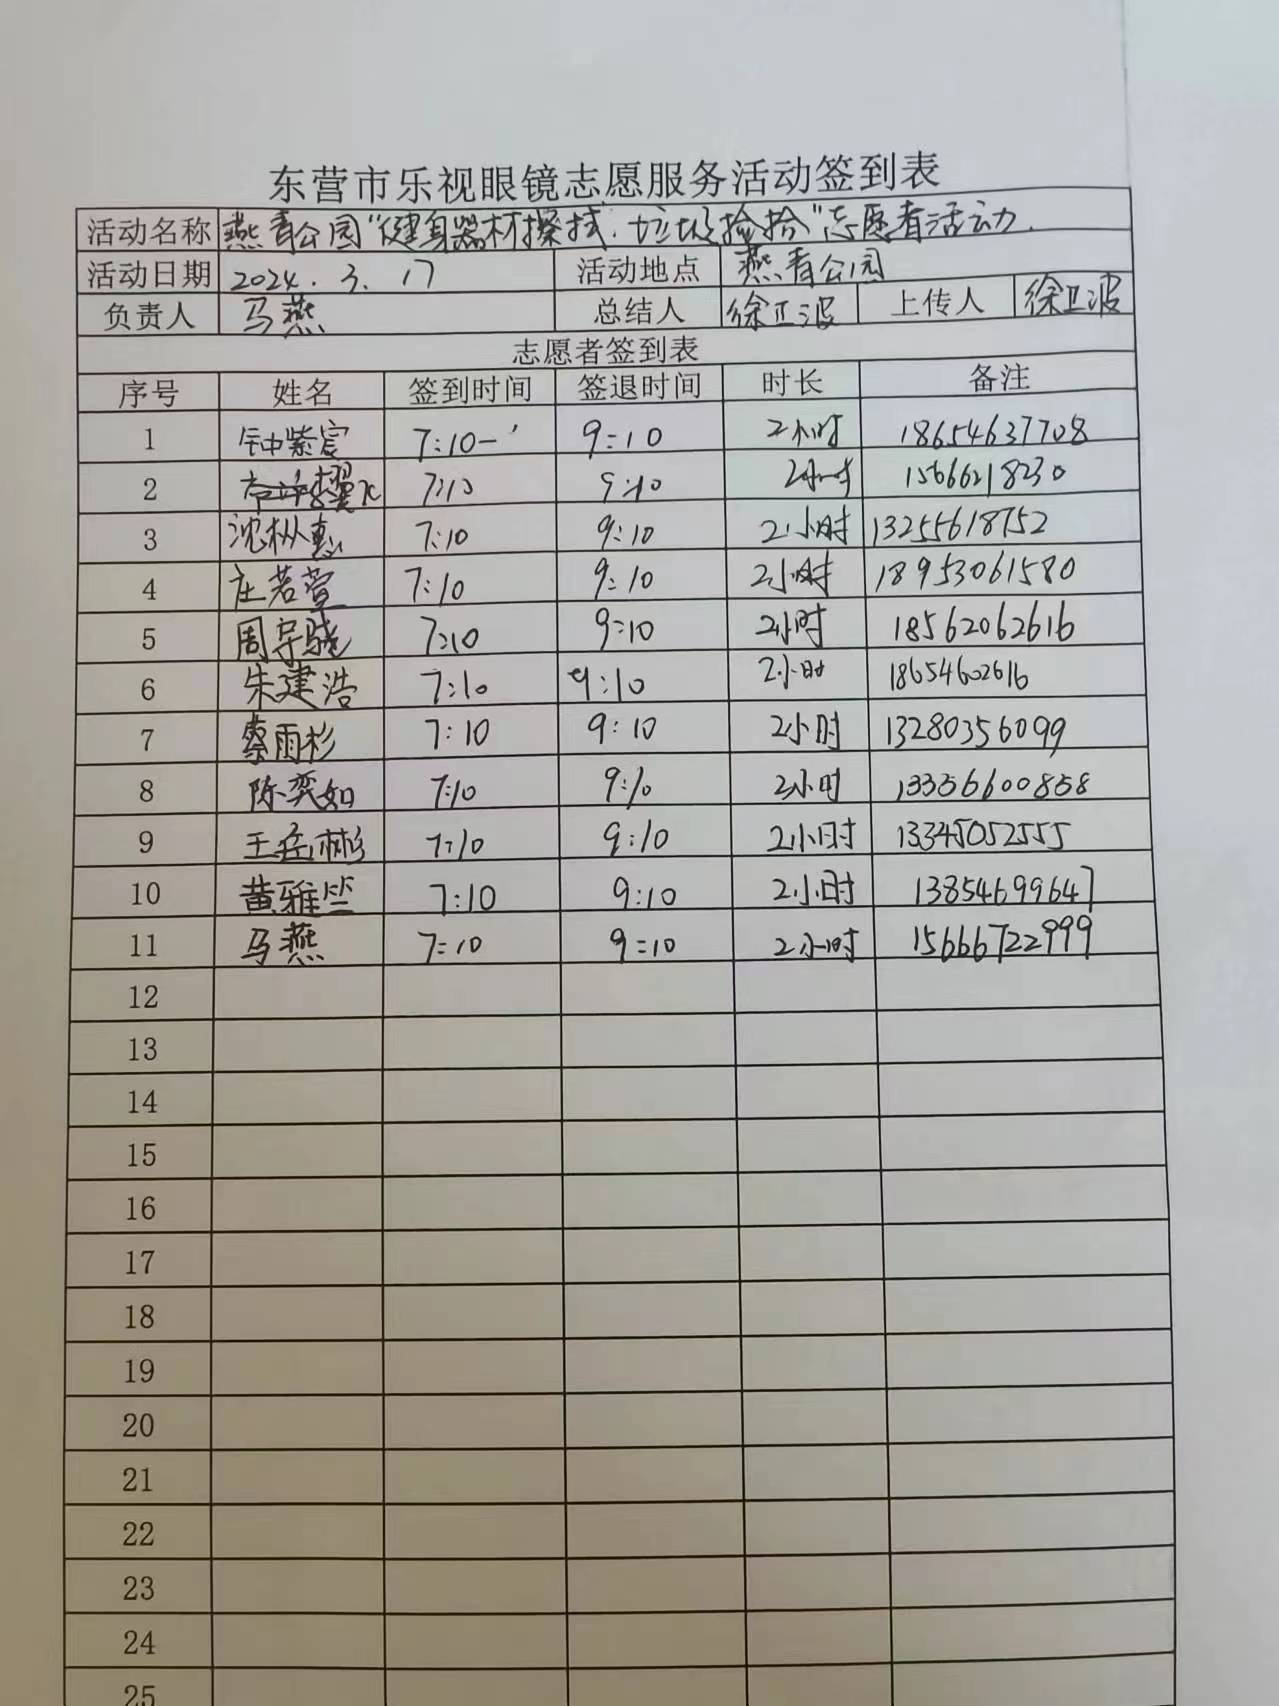 东营市乐视眼镜志愿服务活动签到表
活动名称 燕青公园"健身器材擦拭、垃圾捡拾"志愿者活动.
活动日期 2024.3.17 活动地点 燕青公园
负责人 马燕 总结人 徐卫波 上传人 徐卫波
志愿者签到表
序号 姓名 签到时间 签退时间 时长 备注
1 钟紫宸 7:10 9:10 2小时 18654637708
2 7:10 9:10 2小时 15666218230
3 沈枞惠 7:10 9:10 2小时 13255618752
4 庄若萱 7:10 9:10 2小时 18953061580
5 周宇骁 7:10 9:10 2小时 18562062616
6 朱建浩 7:10 9:10 2小时 18654602616
7 蔡雨杉 7:10 9:10 2小时 13280356099
8 陈奕如 7:10 9:10 2小时 13336600858
9 王岳彬 7:10 9:10 2小时 13345052555
10 黄雅竺 7:10 9:10 2小时 13854699647
11 马燕 7:10 9:10 2小时 15666722999
12
13
14
15
16
17
18
19
20
21
22
23
24
25